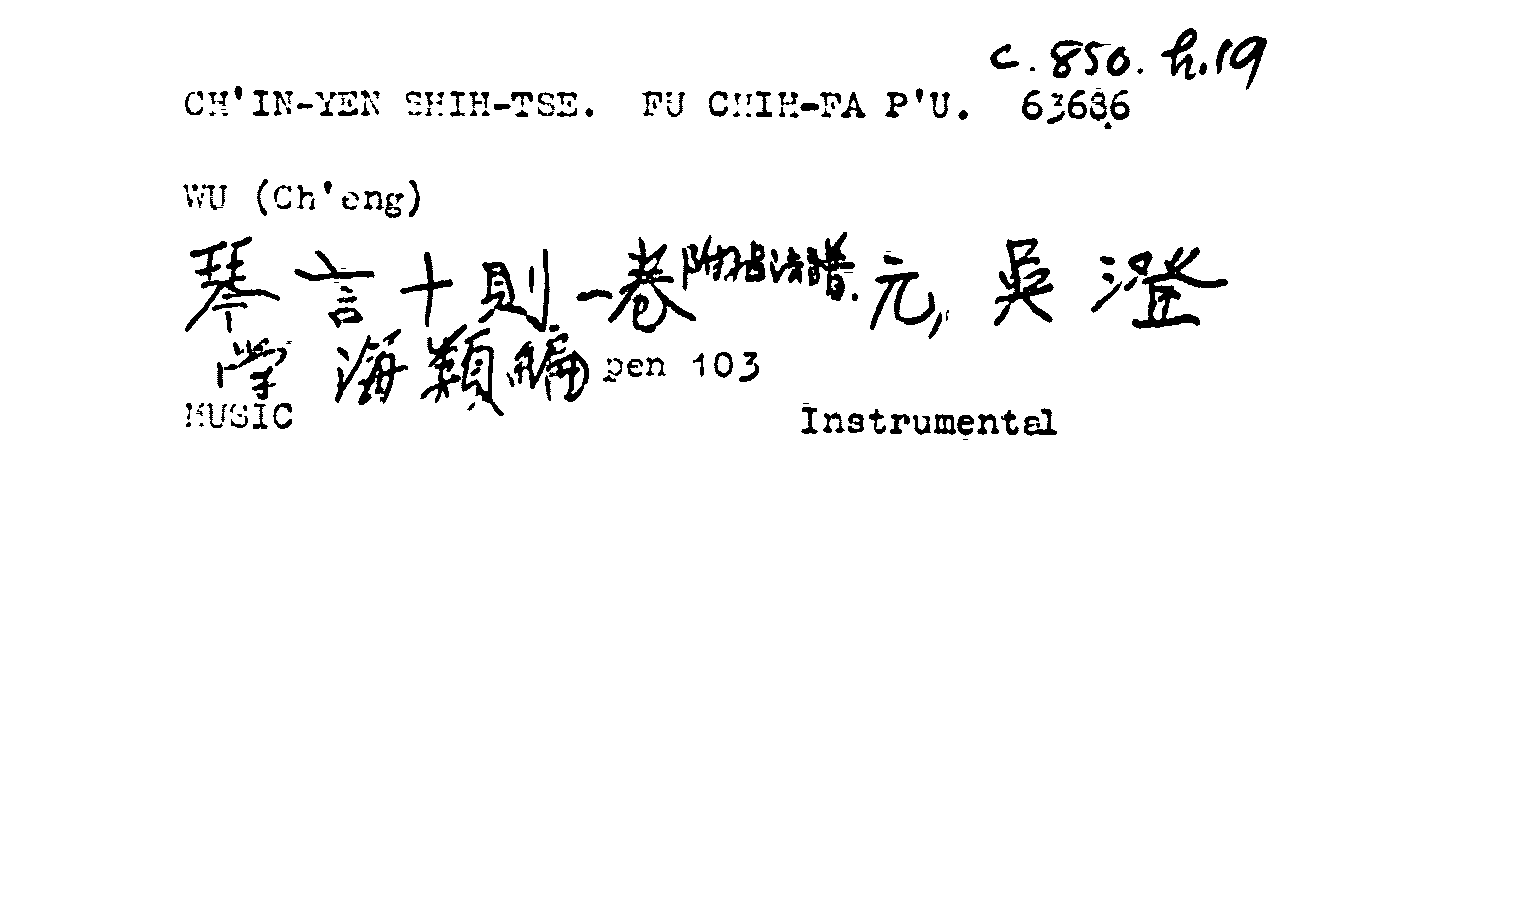 c. 850. h.19
CH'IN-YEN SHIH-TSE. FU CHIH-FA P'U. 63686
WU (Ch'eng)
琴言十則一卷附指法譜. 元, 吳澄
学海類編 pen 103
MUSIC Instrumental